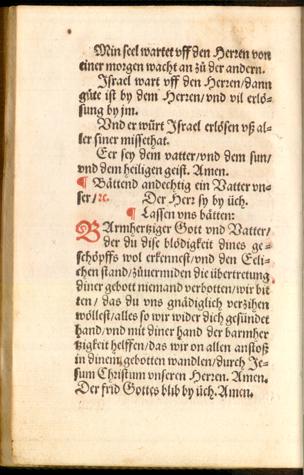 Min seel wartet vff den Herren von
einer morgen wacht an zů der andern.
Israel wart vff den Herren/dann
güte ist by dem Herren/vnd vil erlö-
sung by jm.
Vnd er würt Israel erlösen vß al-
ler siner missethat.
Eer sey dem vatter/vnd dem sun/
vnd dem heiligen geist. Amen.
¶ Bättend andechtig ein Vatter vn-
ser/ꝛc. Der Herr sy by üch.
¶ Lassen vns bätten:
BArmhertziger Gott vnd Vatter/
der du dise blödigkeit dines ge-
schöpffs wol erkennest/vnd den Eeli-
chen stand/zůuermiden die übertretung
diner gebott niemand verbotten/wir bit
ten/ das du vns gnädiglich verzihen
wöllest/alles so wir wider dich gesündet
hand/vnd mit diner hand der barmher
tzigkeit helffen/das wir on allen anstoß
in dinem gebotten wandlen/durch Je-
sum Christum vnseren Herren. Amen.
Der frid Gottes blib by üch. Amen.